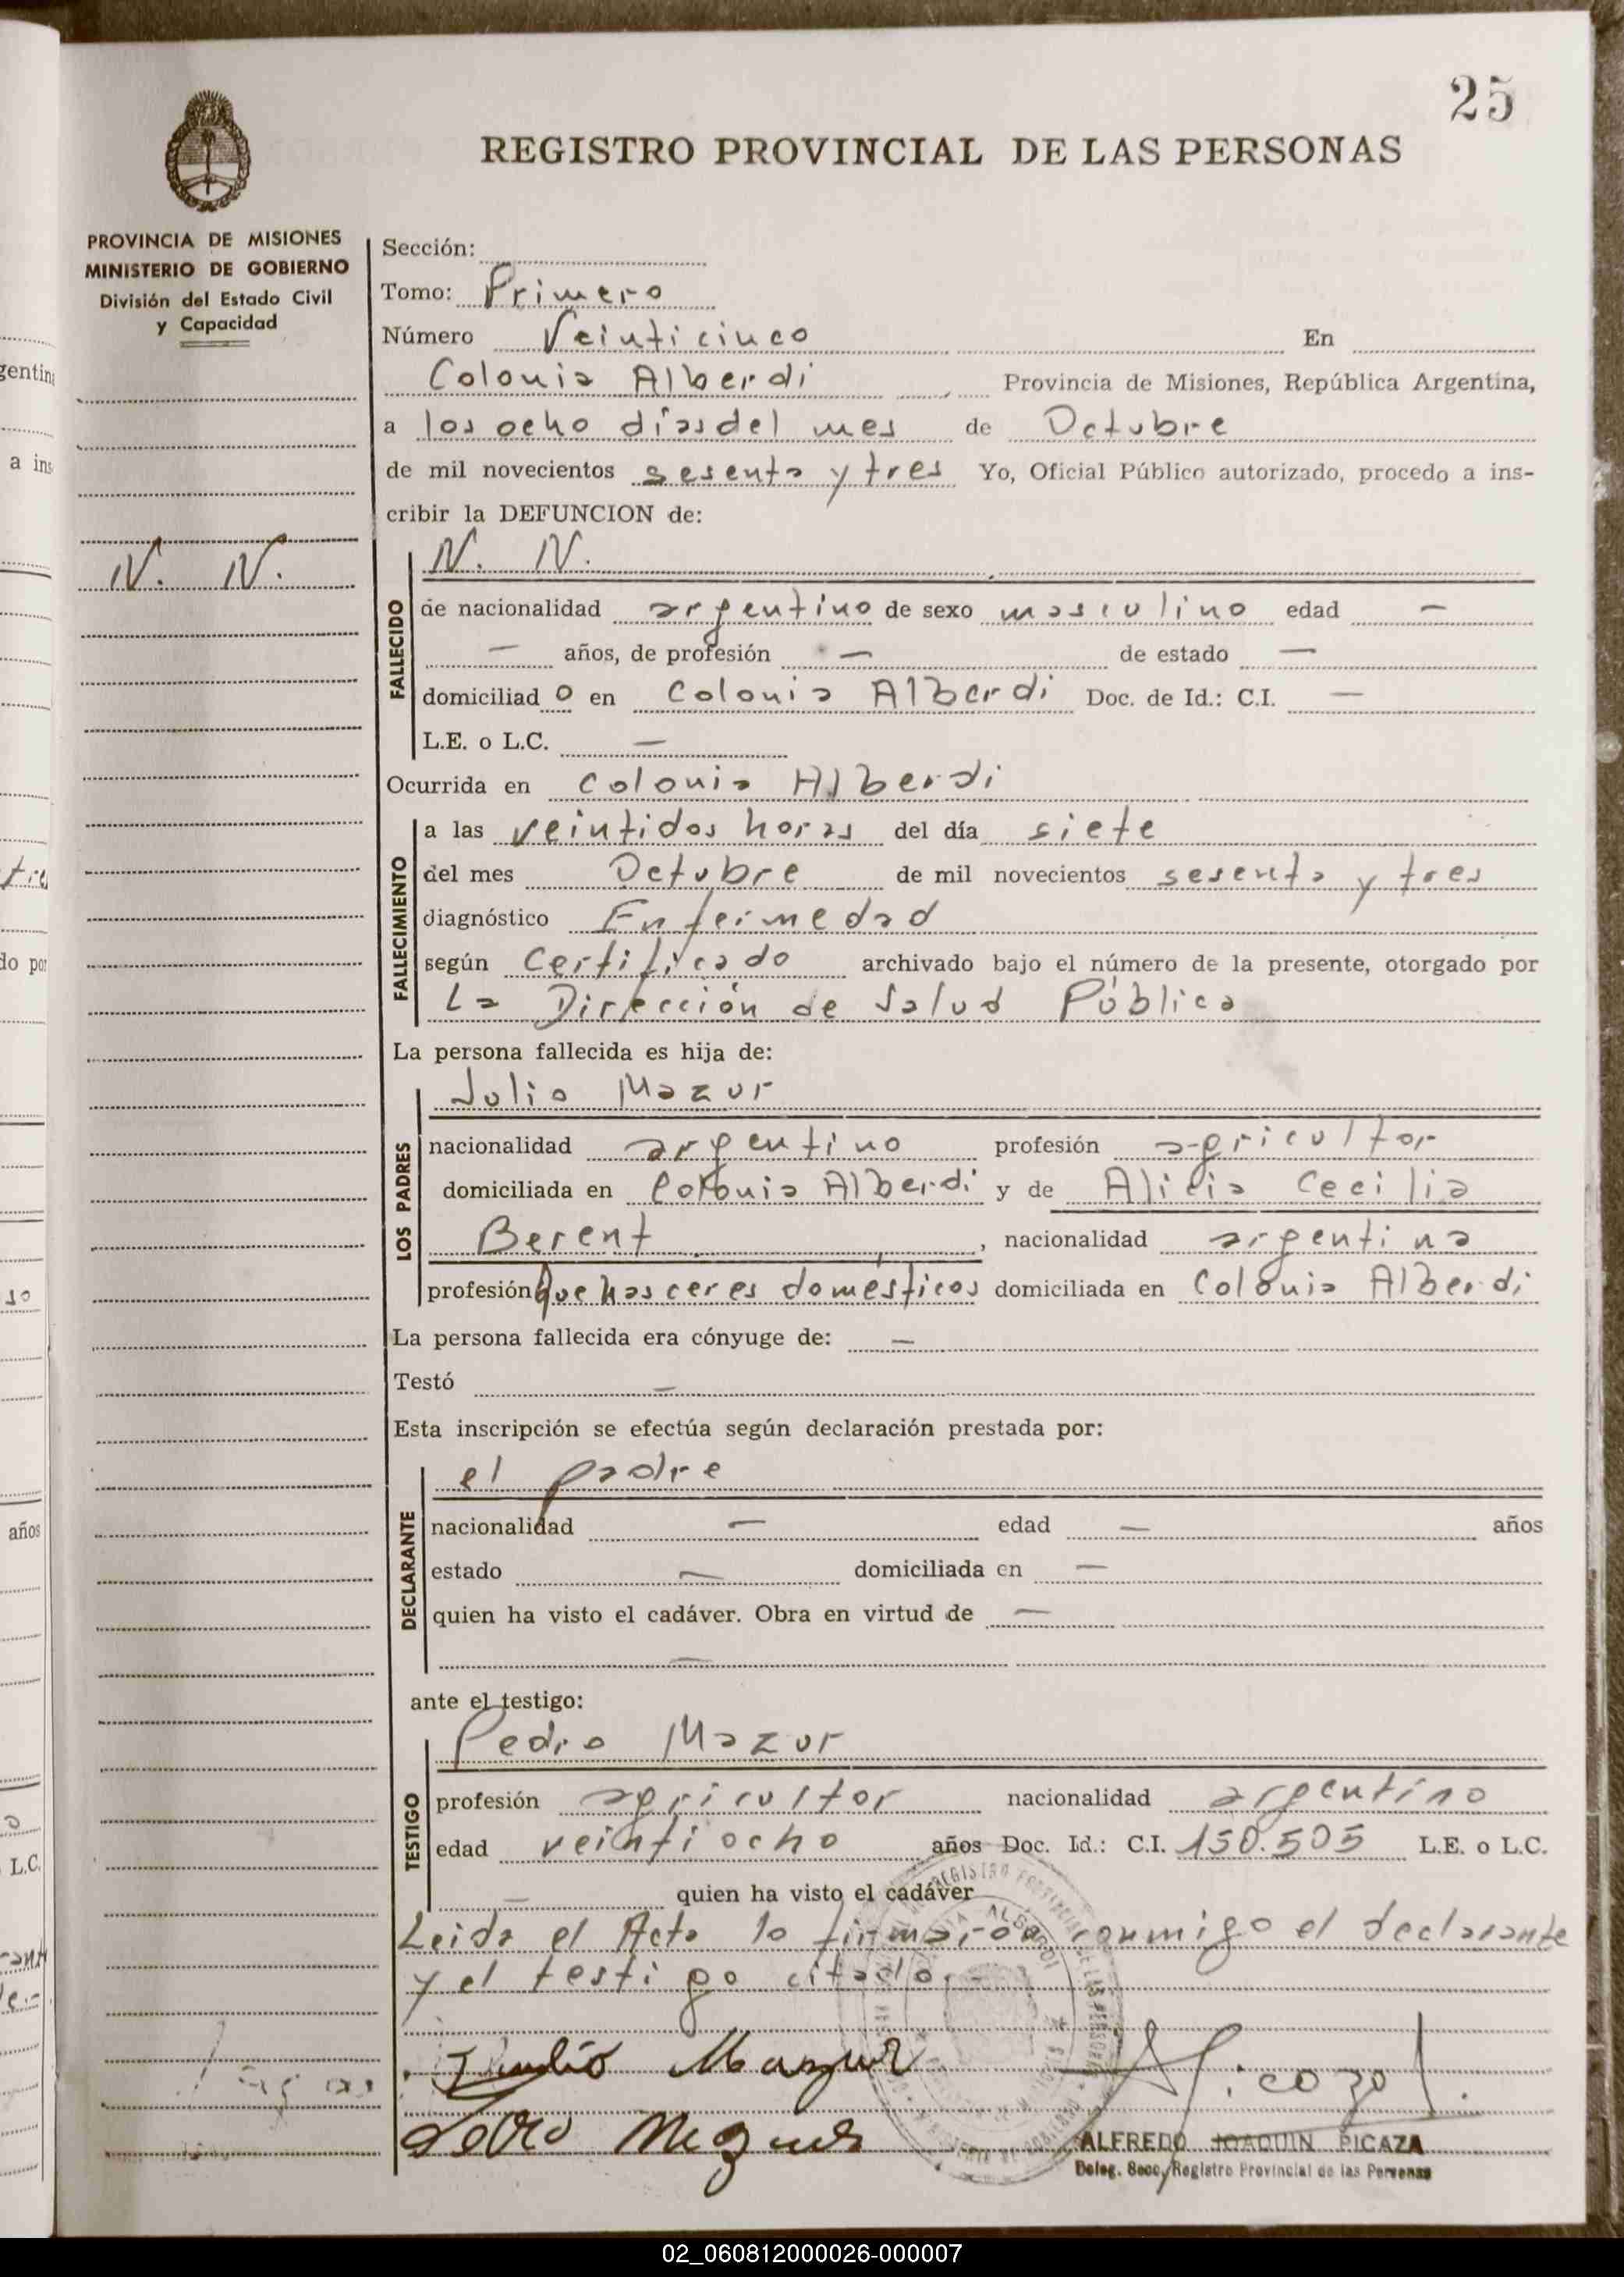 25
REGISTRO PROVINCIAL DE LAS PERSONAS
PROVINCIA DE MISIONES
MINISTERIO DE GOBIERNO
División del Estado Civil
y Capacidad
N. N.
Sección:
Tomo: Primero
Número Veinticinco En
Colonia Alberdi Provincia de Misiones, República Argentina,
a los ocho días del mes de Octubre
de mil novecientos sesenta y tres Yo, Oficial Público autorizado, procedo a ins-
cribir la DEFUNCION de:
N. N.
FALLECIDO
de nacionalidad argentino de sexo masculino edad —
— años, de profesión — de estado —
domiciliad o en Colonia Alberdi Doc. de Id.: C.I. —
L.E. o L.C. —
Ocurrida en Colonia Alberdi
FALLECIMIENTO
a las veintidos horas del día siete
del mes Octubre de mil novecientos sesenta y tres
diagnóstico Enfermedad
según Certificado archivado bajo el número de la presente, otorgado por
La Dirección de Salud Pública
La persona fallecida es hija de:
LOS PADRES
Julio Mazur
nacionalidad argentino profesión agricultor
domiciliada en Colonia Alberdi y de Alicia Cecilia
Berent, nacionalidad argentina
profesión Quehasceres domésticos domiciliada en Colonia Alberdi
La persona fallecida era cónyuge de: —
Testó —
Esta inscripción se efectúa según declaración prestada por:
DECLARANTE
el padre
nacionalidad — edad — años
estado — domiciliada en —
quien ha visto el cadáver. Obra en virtud de —
—
ante el testigo:
TESTIGO
Pedro Mazur
profesión agricultor nacionalidad argentino
edad veintiocho años Doc. Id.: C.I. 150.505 L.E. o L.C.
— quien ha visto el cadáver
Leida el Acta la firmaron conmigo el declarante
y el testigo citado.-
Julio Mazur
Pedro Mazur
ALFREDO JOAQUIN PICAZA
Deleg. Secc. Registro Provincial de las Personas
gentina
a ins
do por
años
L.C.
02_060812000026-000007